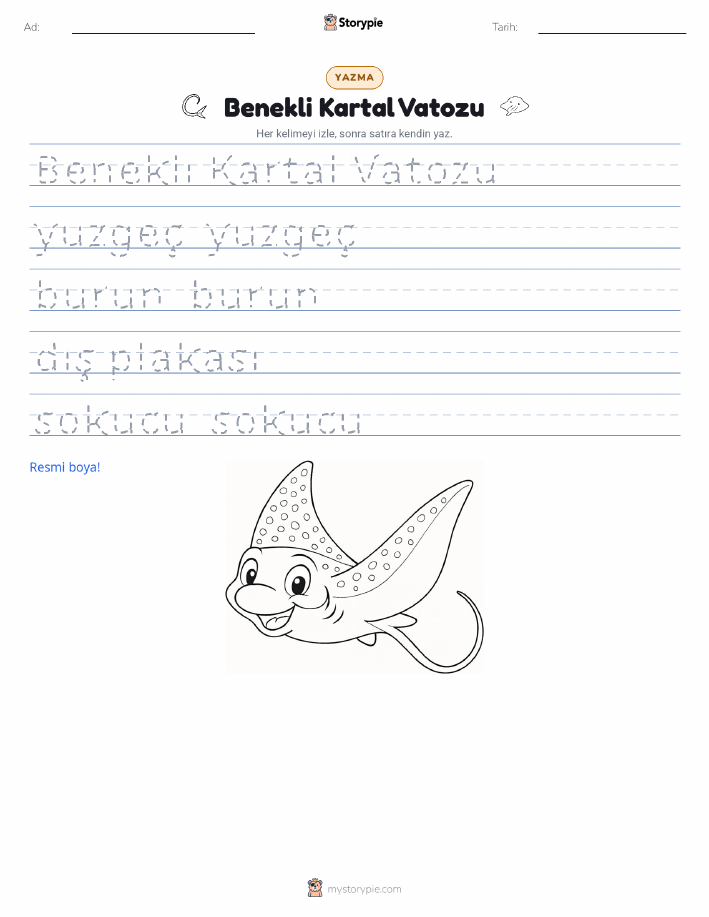 Ad:
Storypie
Tarih:
YAZMA
Benekli Kartal Vatozu
Her kelimeyi izle, sonra satıra kendin yaz.
Benekli Kartal Vatozu
yuzgeç yuzgeç
burun burun
dış plakası
sokucu sokucu
Resmi boya!
mystorypie.com